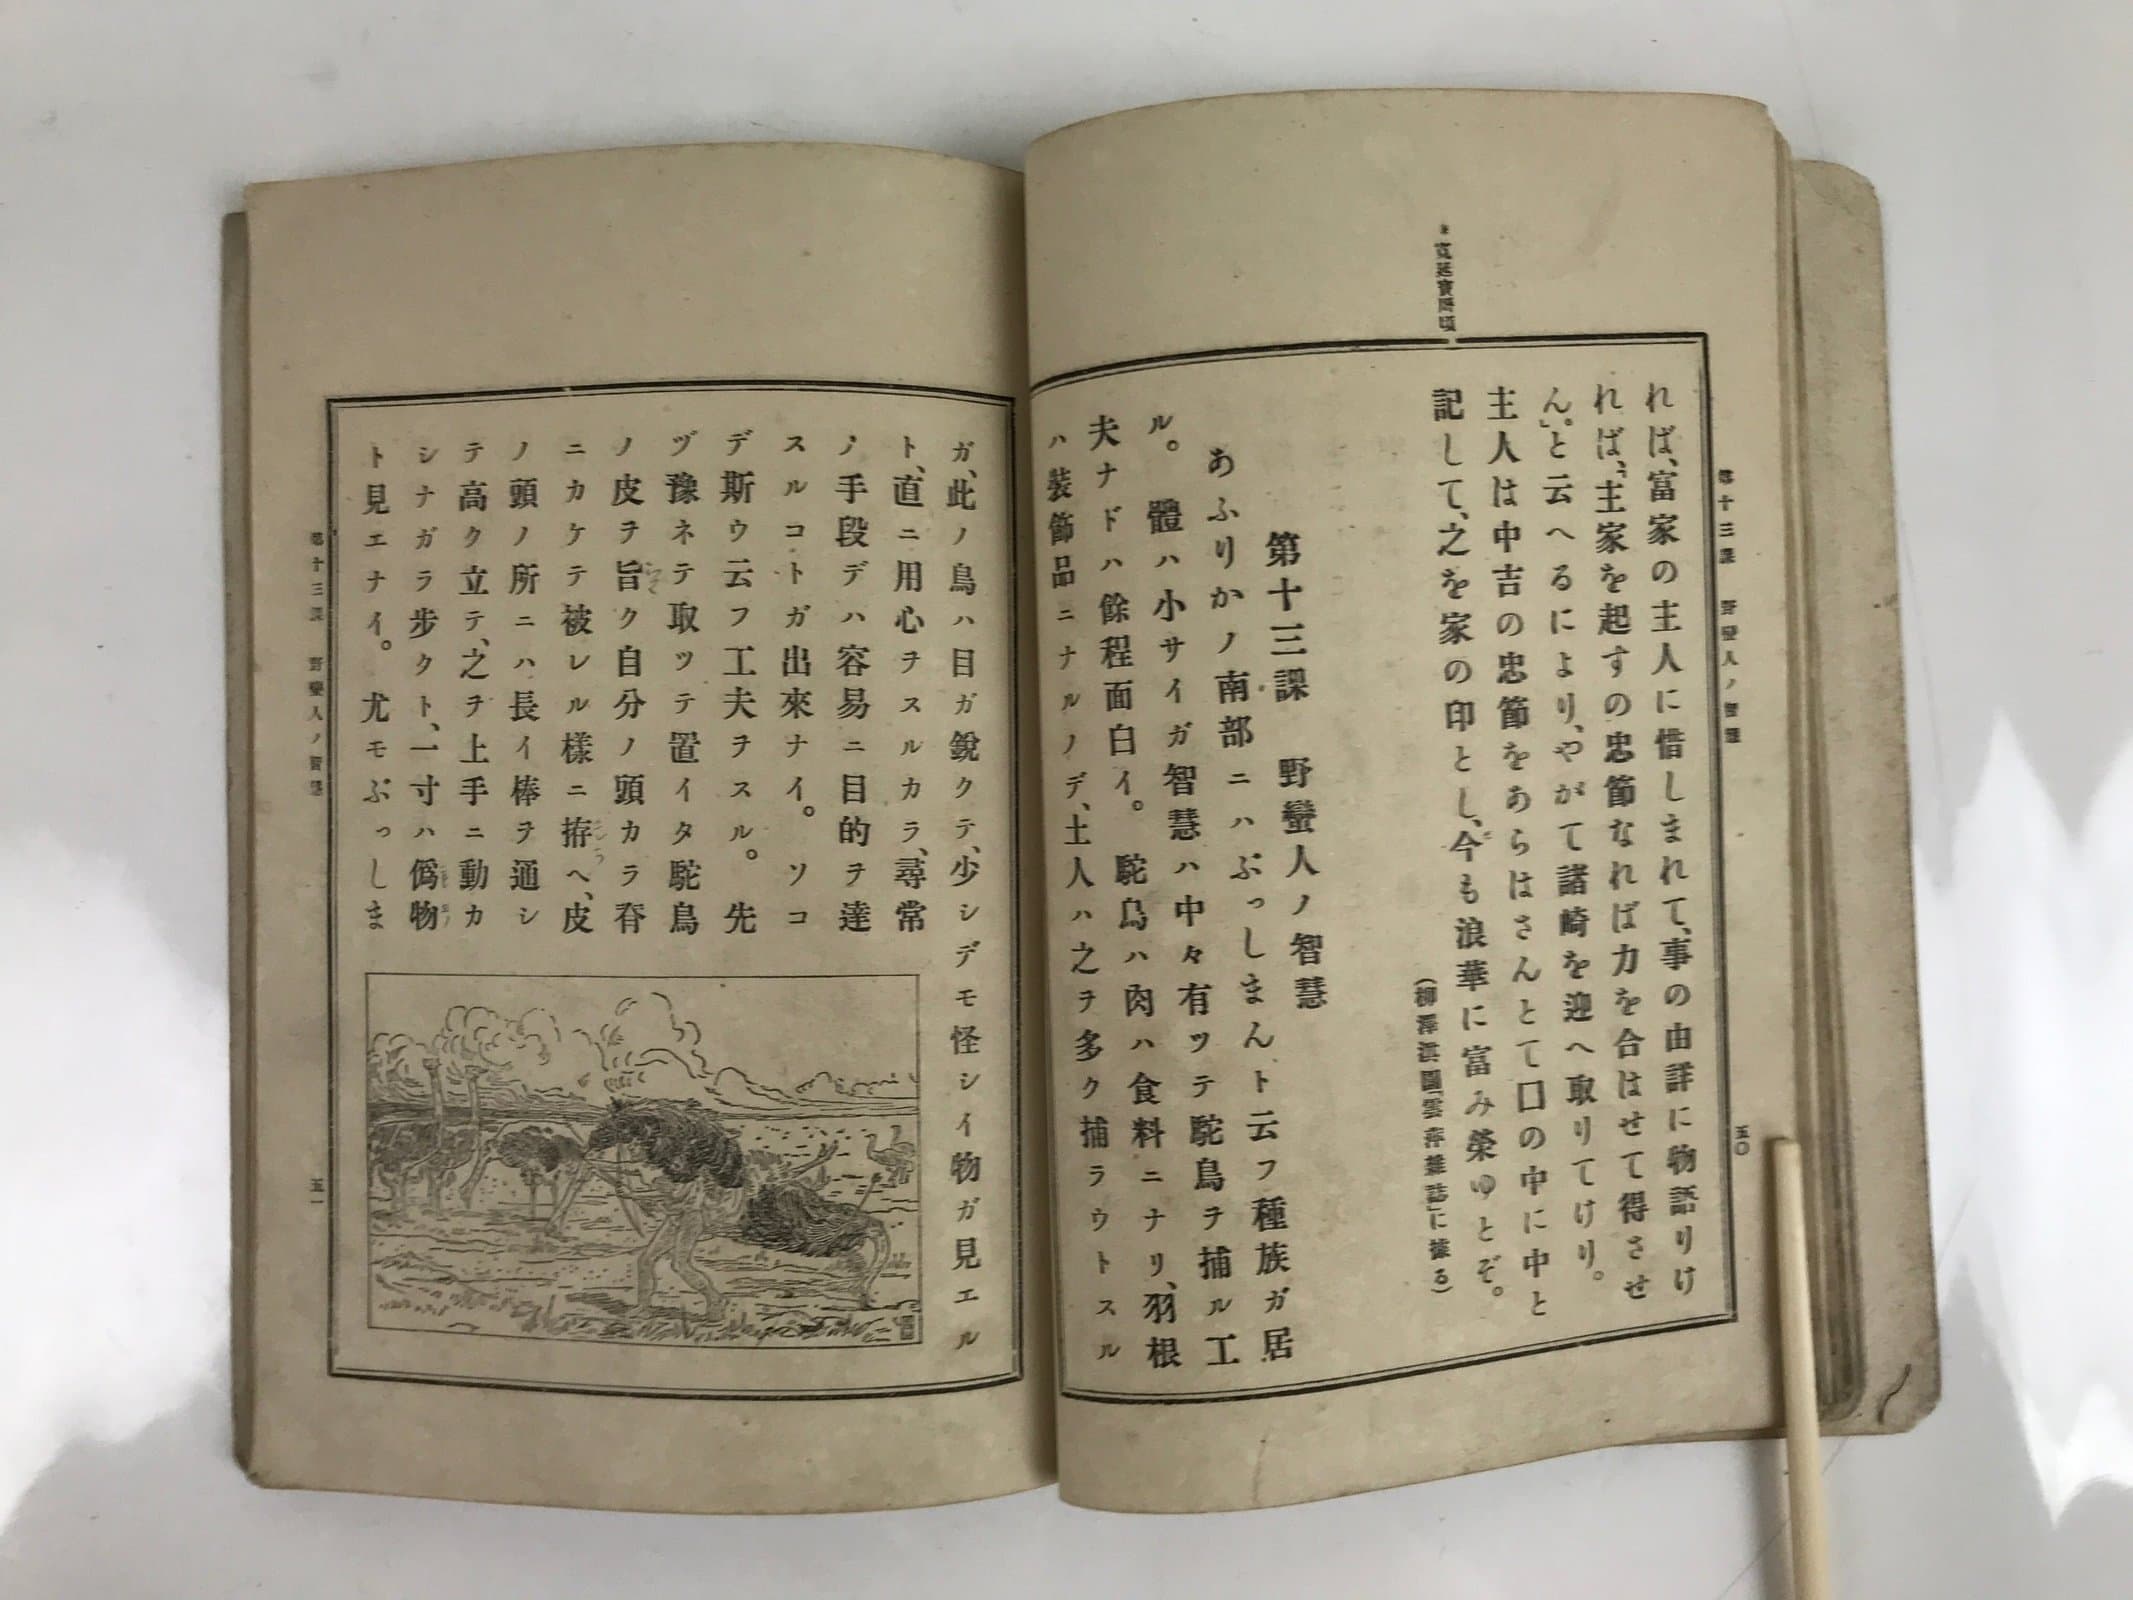 第十三課　野蠻人ノ智慧
五〇
れば、富家の主人に惜しまれて、事の由詳に物語りけ
れば、「主家を起すの忠節なれば力を合はせて得させ
ん。」と云へるにより、やがて諸崎を迎へ取りてけり。
主人は中吉の忠節をあらはさんとて囗の中に中と
記して、之を家の印とし、今も浪華に富み榮ゆとぞ。
寬延寶曆頃
(柳澤淇園「雲萍雜誌」に據る)
第十三課　野蠻人ノ智慧
あふりかノ南部ニハぶっしまん、ト云フ種族ガ居
ル。體ハ小サイガ智慧ハ中々有ツテ駝鳥ヲ捕ル工
夫ナドハ餘程面白イ。駝鳥ハ肉ハ食料ニナリ、羽根
ハ裝飾品ニナルノデ、土人ハ之ヲ多ク捕ラウトスル
ガ、此ノ鳥ハ目ガ銳クテ、少シデモ怪シイ物ガ見エル
ト、直ニ用心ヲスルカラ、尋常
ノ手段デハ容易ニ目的ヲ達
スルコトガ出來ナイ。ソコ
デ斯ウ云フ工夫ヲスル。先
ヅ豫ネテ取ツテ置イタ駝鳥
ノ皮ヲ旨ク自分ノ頭カラ脊
ニカケテ被レル樣ニ拵ヘ、皮
ノ頭ノ所ニハ長イ棒ヲ通シ
テ高ク立テ、之ヲ上手ニ動カ
シナガラ步クト、一寸ハ僞物
ト見エナイ。尤モぶっしま
第十三課　野蠻人ノ智慧
五一